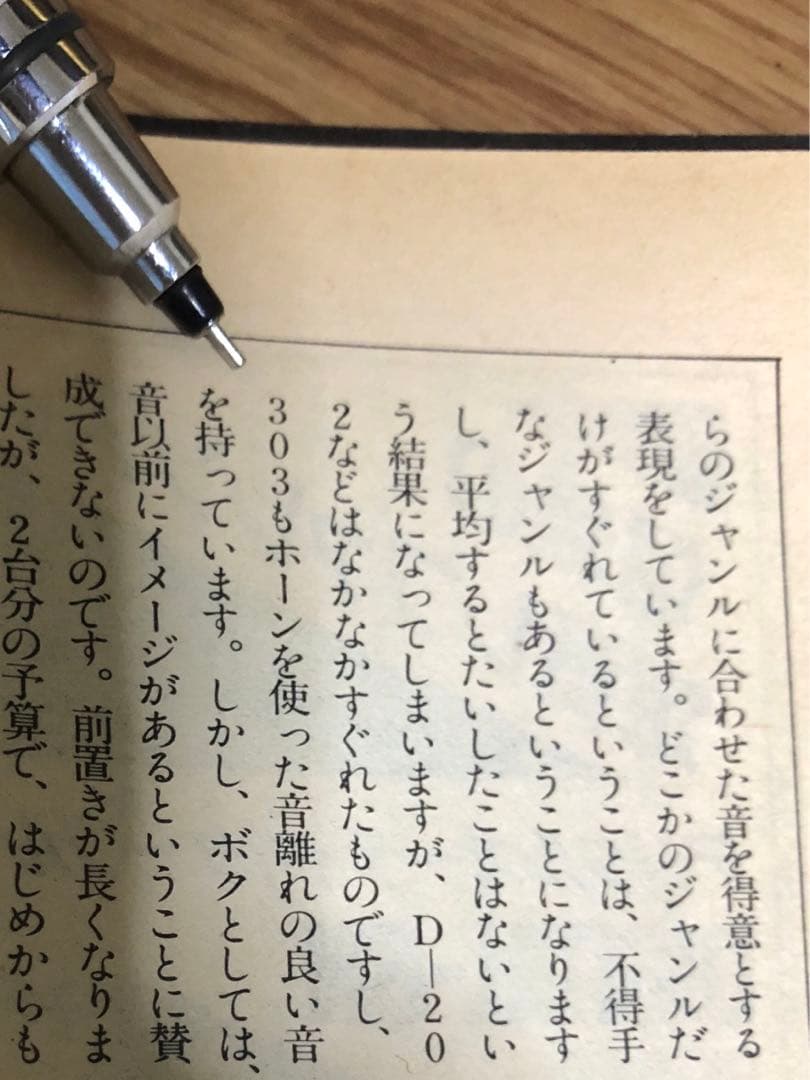 らのジャンルに合わせた音を得意とする
表現をしています。どこかのジャンルだ
けがすぐれているということは、不得手
なジャンルもあるということになります
し、平均するとたいしたことはないとい
う結果になってしまいますが、D—20
2などはなかなかすぐれたものですし、
303もホーンを使った音離れの良い音
を持っています。しかし、ボクとしては、
音以前にイメージがあるということに賛
成できないのです。前置きが長くなりま
したが、2台分の予算で、はじめからも